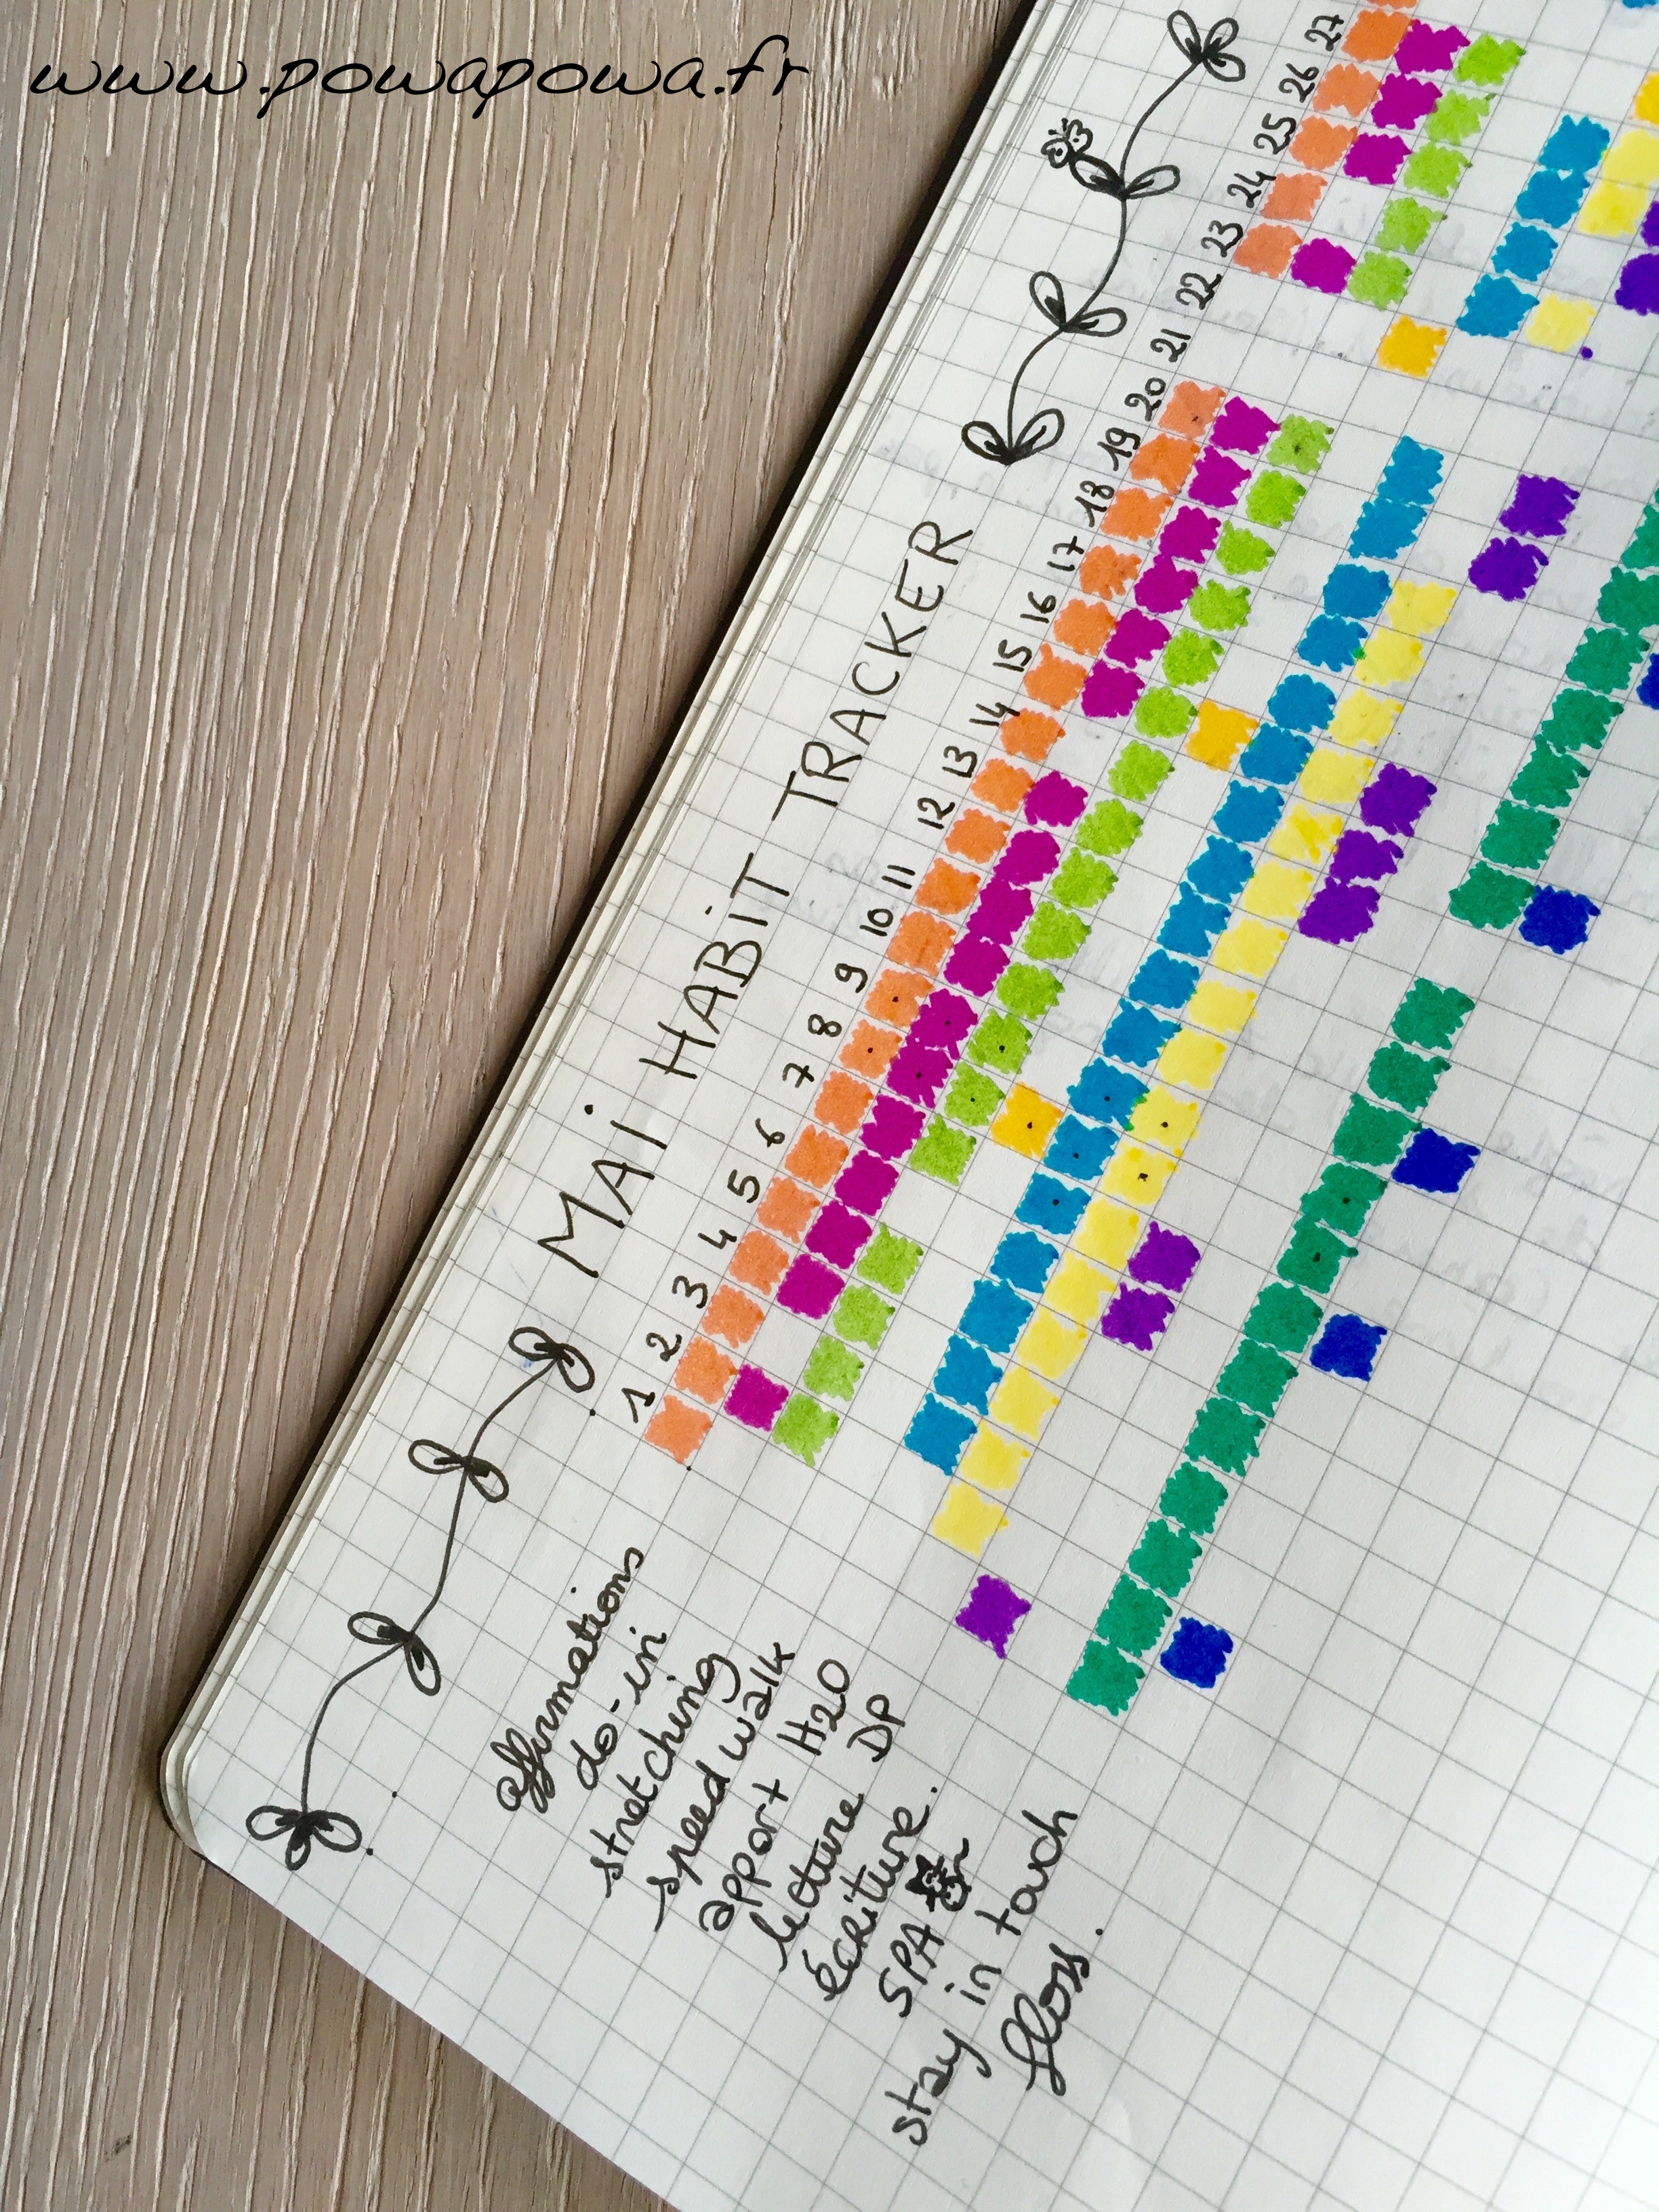 www.powapowa.fr
MAI HABIT TRACKER
1 2 3 4 5 6 7 8 9 10 11 12 13 14 15 16 17 18 19 20 21 22 23 24 25 26 27
affirmations
do-in
stretching
speed walk
apport H2O
lecture DP
écriture.
SPA
stay in touch
floss.